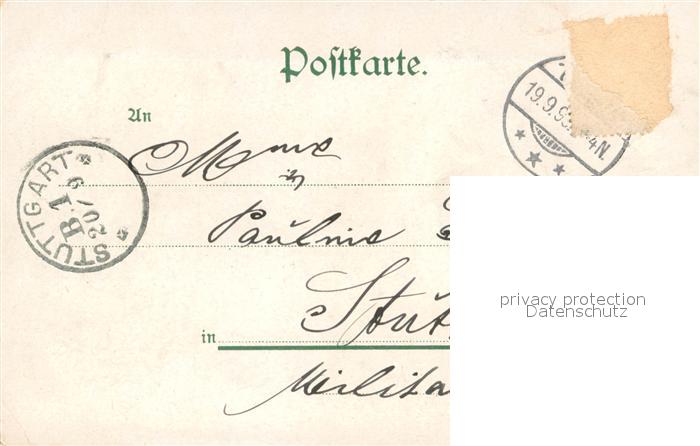 Poſtkarte.
An
Mme
Pauline
in Stut
Milita
STUTTGART
B.1
20/9
19.9.9
4N.
privacy protection
Datenschutz